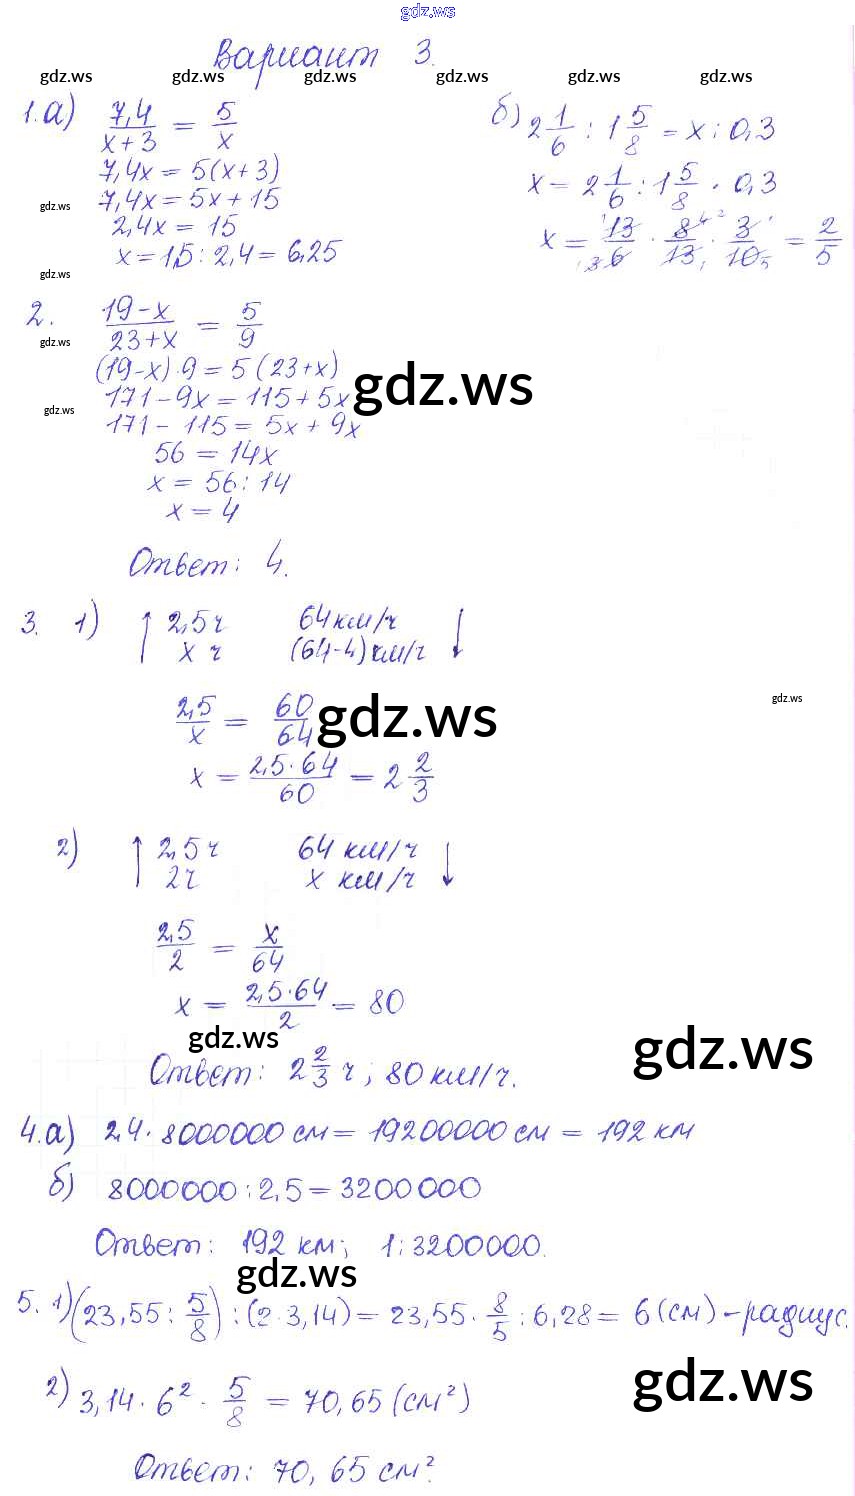 gdz.ws
Вариант 3.
gdz.ws gdz.ws gdz.ws gdz.ws gdz.ws gdz.ws
1. а) 7,4/(x+3) = 5/x
7,4x = 5(x+3)
gdz.ws 7,4x = 5x + 15
2,4x = 15
x = 15 : 2,4 = 6,25
gdz.ws
б) 2 1/6 : 1 5/8 = x : 0,3
x = 2 1/6 : 1 5/8 · 0,3
x = 13/6 · 8/13 · 3/10 = 2/5
2. (19-x)/(23+x) = 5/9
gdz.ws
(19-x)·9 = 5(23+x)
171 - 9x = 115 + 5x gdz.ws
gdz.ws 171 - 115 = 5x + 9x
56 = 14x
x = 56 : 14
x = 4
Ответ: 4.
3. 1) ↑ 2,5 ч 64 км/ч ↓
x ч (64-4) км/ч
gdz.ws
2,5/x = 60/64 gdz.ws
x = (2,5·64)/60 = 2 2/3
2) ↑ 2,5 ч 64 км/ч ↓
2 ч x км/ч
2,5/2 = x/64
x = (2,5·64)/2 = 80
gdz.ws gdz.ws
Ответ: 2 2/3 ч; 80 км/ч.
4. а) 2,4 · 8000000 см = 19200000 см = 192 км
б) 8000000 : 2,5 = 3200000
Ответ: 192 км; 1:3200000.
gdz.ws
5. 1) (23,55 : 5/8) : (2·3,14) = 23,55 · 8/5 : 6,28 = 6 (см) - радиус.
2) 3,14 · 6² · 5/8 = 70,65 (см²)
gdz.ws
Ответ: 70,65 см².